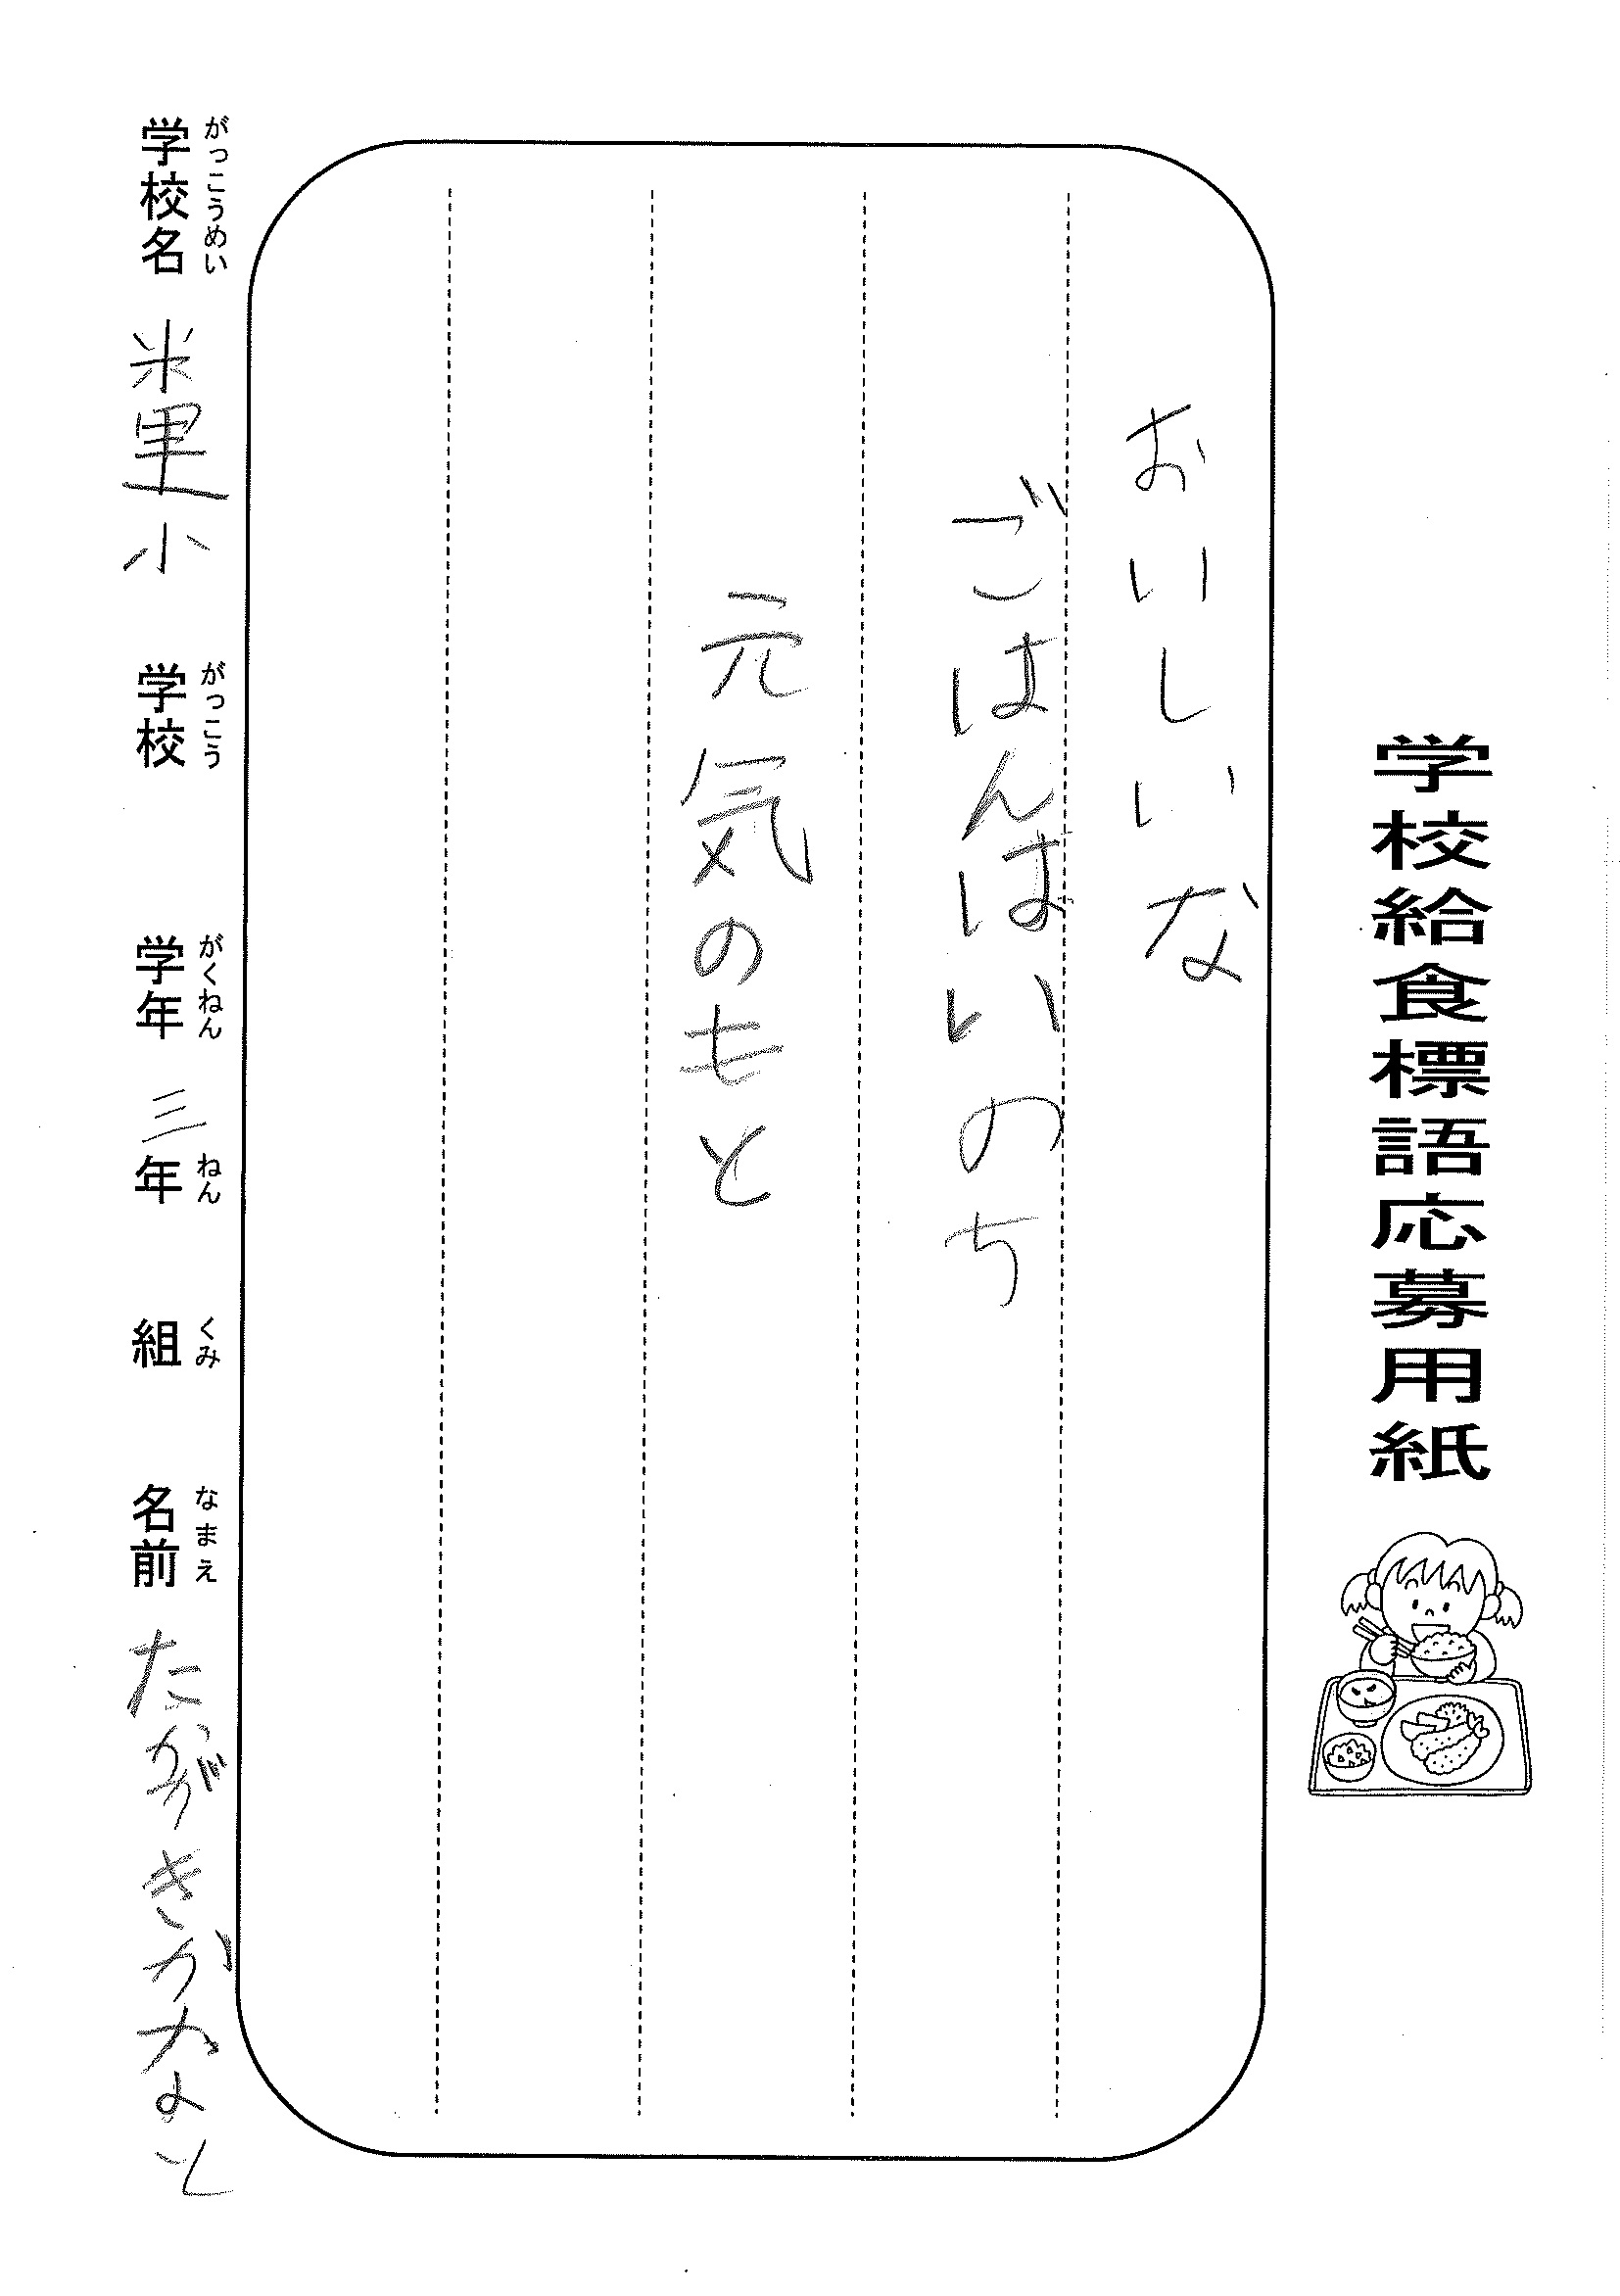 学校給食標語応募用紙
おいしいな
ごはんはいのち
元気のもと
がっこうめい　がっこう　がくねん　ねん　くみ　なまえ
学校名　米里小　学校　学年　三年　組　名前　たかがきかなと